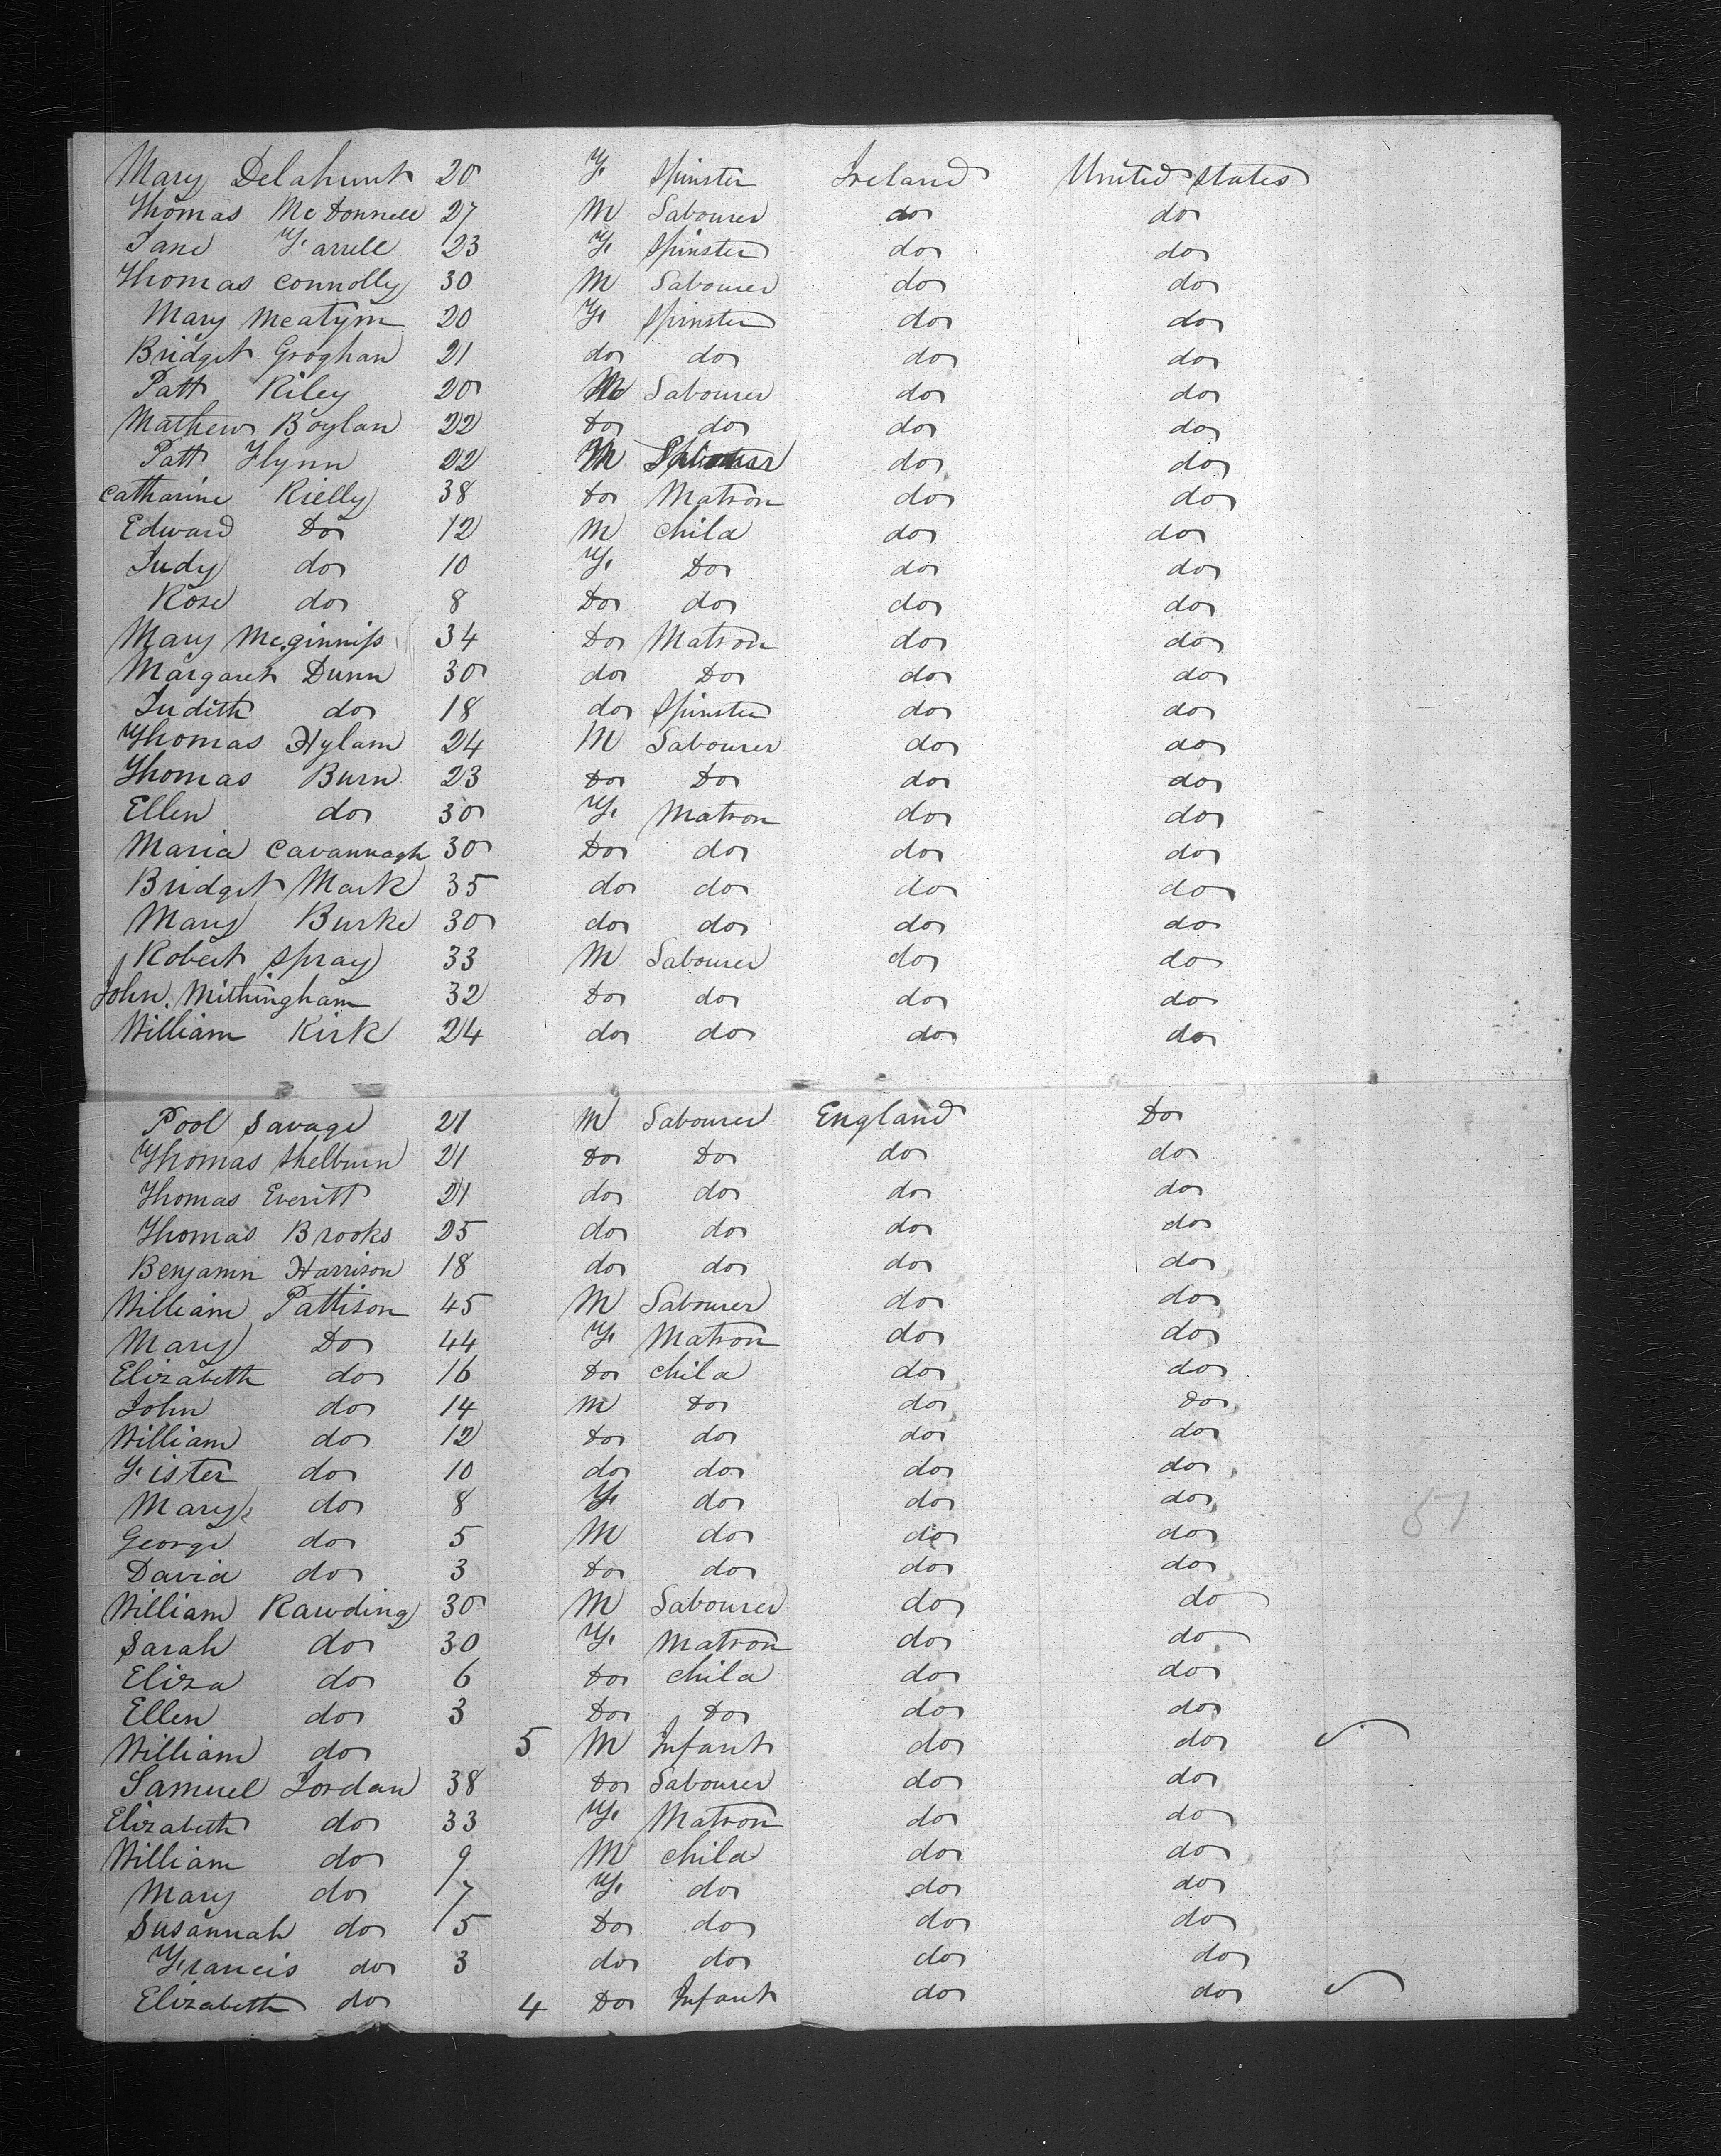 Mary Delahunt 20 F. Spinster Ireland United States
Thomas McDonnell 27 M Labourer do do
Jane Farrell 23 F. Spinster do do
Thomas Connolly 30 M Labourer do do
Mary 20 F. Spinster do do
Bridget Groghan 21 do do do do
Patt Riley 20 M Labourer do do
Mathew Boylan 22 Do do do do
Patt Flynn 22 M do do
Catharine Rielly 38 Do Matron do do
Edward Do 12 M Child do do
Judy do 10 F. Do do do
Rose do 8 Do do do do
Mary McGinniss 34 Do Matron do do
Margaret Dunn 30 do Do do do
Judith do 18 do Spinster do do
Thomas Hylam 24 M Labourer do do
Thomas Burn 23 Do Do do do
Ellen do 30 F. Matron do do
Maria Cavannagh 30 Do do do do
Bridget Mark 35 do do do do
Mary Burke 30 do do do do
Robert Spray 33 M Labourer do do
John 32 Do do do do
William Kirk 24 do do do do
Pool Savage 21 M Labourer England Do
Thomas Shelburn 21 Do Do do do
Thomas Everitt 21 do do do do
Thomas Brooks 25 do do do do
Benjamin Harrison 18 do do do do
William Pattison 45 M Labourer do do
Mary Do 44 F. Matron do do
Elizabeth do 16 Do Child do do
John do 14 M Do do Do
William do 12 Do do do do
Fister do 10 do do do do
Mary do 8 F. do do do
George do 5 M do do do
David do 3 Do do do do
William Rawding 30 M Labourer do do
Sarah do 30 F. Matron do do
Eliza do 6 Do Child do do
Ellen do 3 Do Do do do
William do 5 M Infant do do
Samuel Jordan 38 Do Labourer do do
Elizabeth do 33 F. Matron do do
William do 9 M Child do do
Mary do 7 F. do do do
Susannah do 5 Do do do do
Francis do 3 do do do do
Elizabeth do 4 Do Infant do do